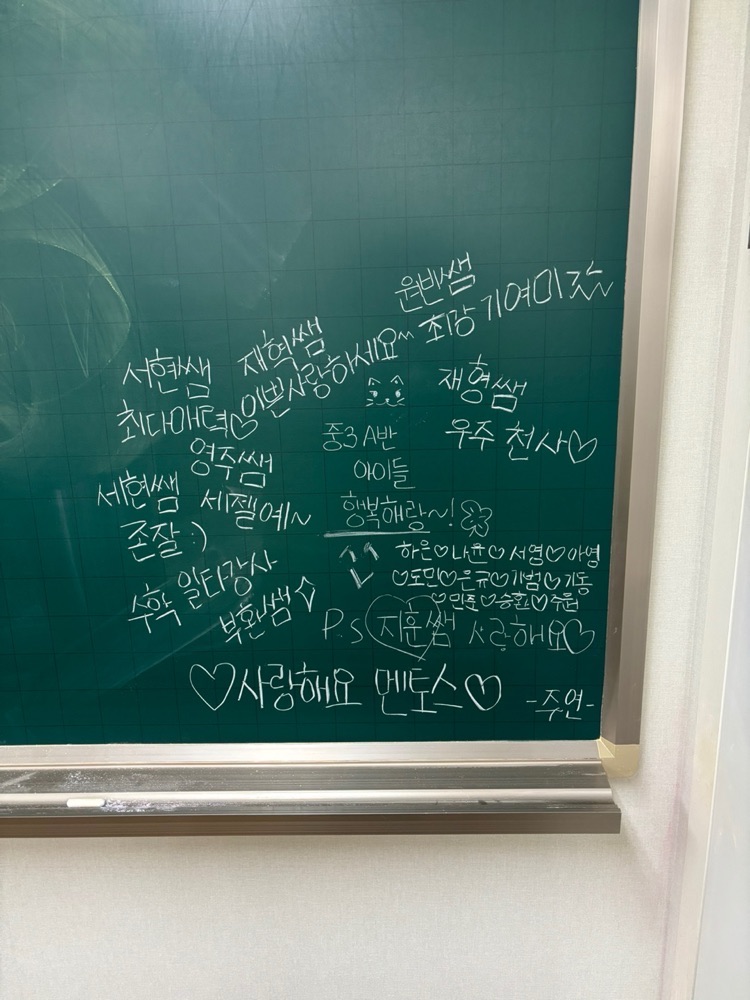 원빈쌤
최강 기여미
재혁쌤
이쁜사랑하세요~
서현쌤
최다매력♡
재형쌤
우주 천사♡
영주쌤
세젤예~
세현쌤
존잘 :)
중3 A반
아이들
행복해랑~!
하은♡나윤♡서영♡아영
♡도민♡은규♡기범♡기동
♡민준♡승효♡주원
수학 일타강사
부환쌤
P.S 지훈쌤 사랑해요♡
♡사랑해요 멘토스♡
-주연-